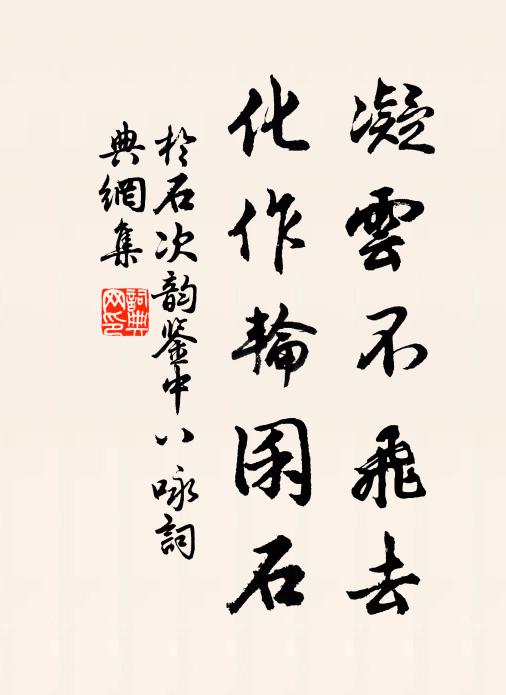 凝雲不飛去
化作輪囷石
於石次韵鉴中八咏詞
典網集
詞典
网印